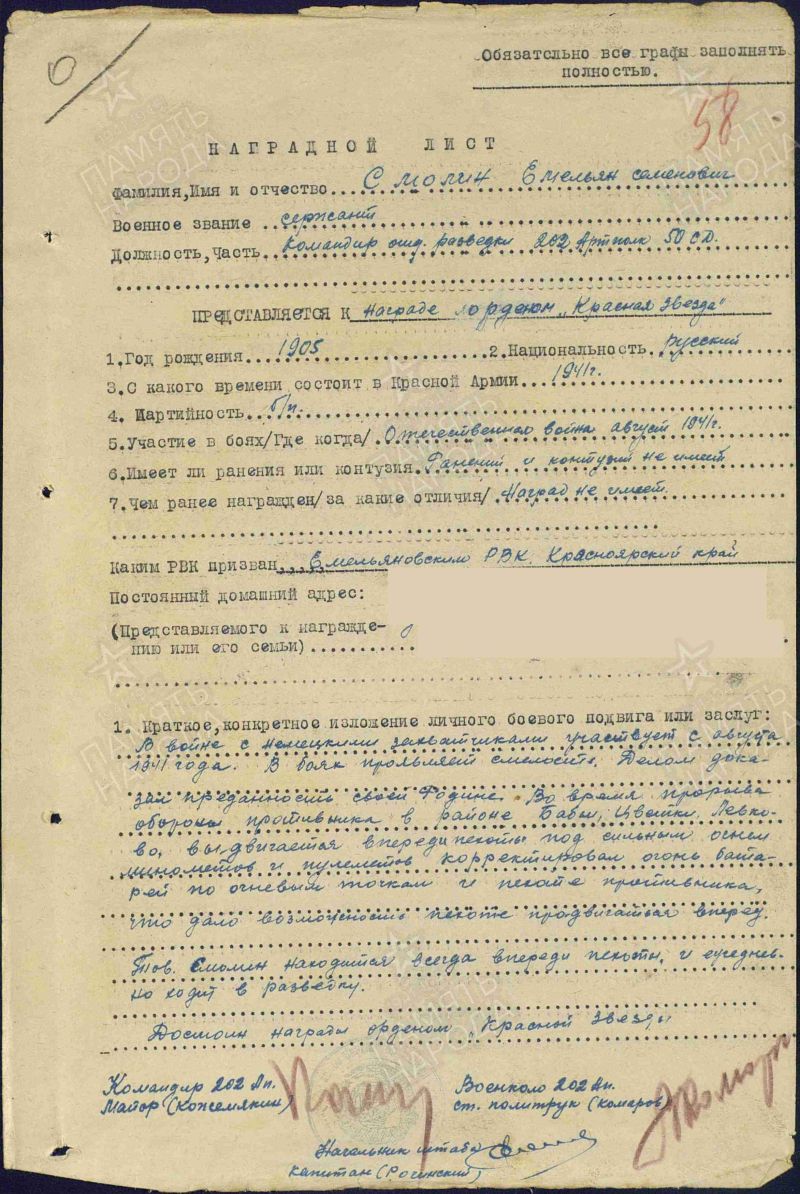 Обязательно все графы заполнять
полностью.
58
НАГРАДНОЙ ЛИСТ
Фамилия,Имя и отчество Смолин Емельян семенович
Военное звание сержант
Должность,Часть Командир отд. разведки 202 Артполк 50 СД.
ПРЕДСТАВЛЯЕТСЯ К Награде орденом „Красная звезда"
1.Год рождения 1905 2.Национальность Русский
3.С какого времени состоит в Красной Армии 1941г.
4. Партийность б/п.
5.Участие в боях/Где когда/ Отечественная война август 1941г.
6.Имеет ли ранения или контузия. Ранений и контузий не имеет
7.Чем ранее награжден/за какие отличия/ Наград не имеет.
Каким РВК призван Емельяновским РВК. Красноярский край
Постоянный домашний адрес:
(Представляемого к награжде-
нию или его семьи)
1. Краткое,конкретное изложение личного боевого подвига или заслуг:
В войне с немецкими захватчиками участвует с августа
1941 года. В боях проявляет смелость. Делом дока-
зал преданность своей Родине. Во время прорыва
обороны противника в районе Бабы, Цветки, Левко-
во, выдвигается впереди пехоты под сильным огнем
минометов и пулеметов корректировал огонь бата-
рей по огневым точкам и пехоте противника,
что дало возможность пехоте продвигаться вперед.
Тов. Смолин находится всегда впереди пехоты, и ежеднев-
но ходит в разведку.
Достоин награды орденом „Красной Звезды
Командир 202 Ап. Военком 202 Ап.
Майор (Кожемякин) ст. политрук (Комаров)
Начальник штаба
капитан (Рогинский)
ПАМЯТЬ
НАРОДА